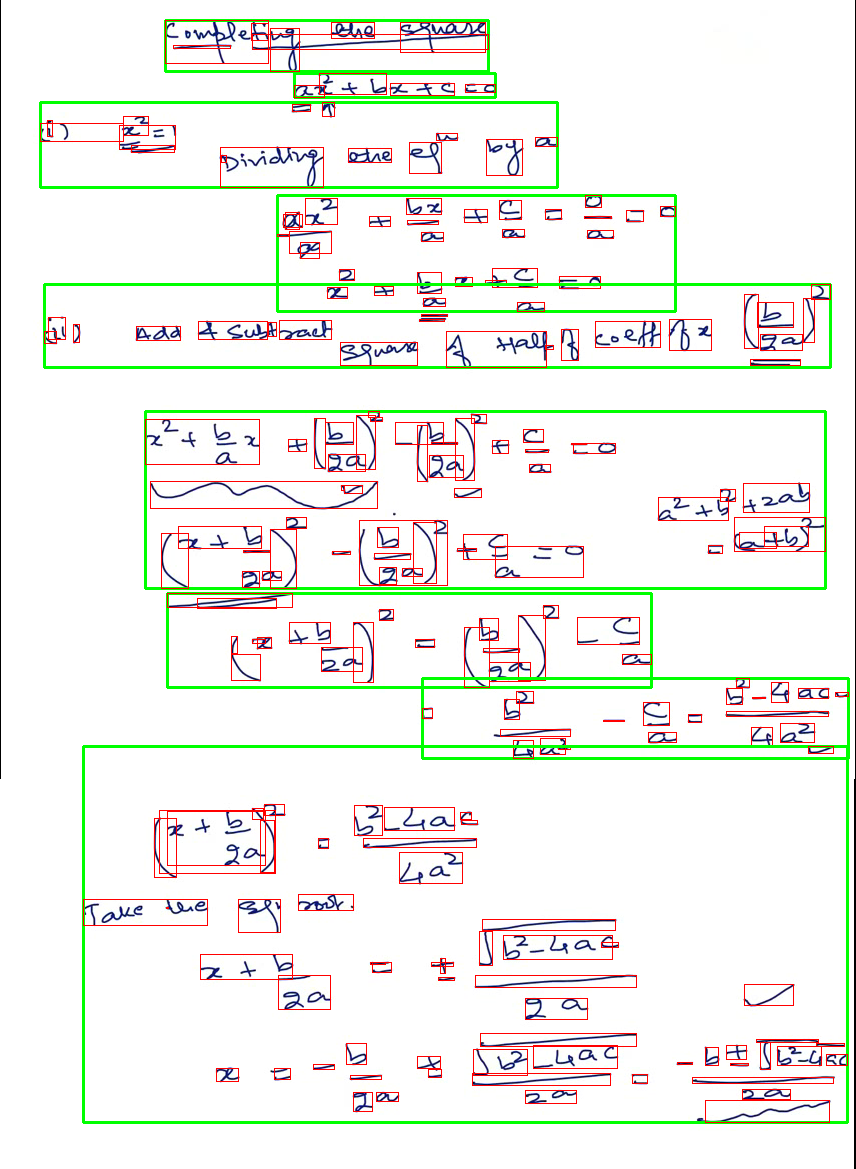 Completing the square
ax² + bx + c = 0
(i) x² = 1
Dividing the eqⁿ by a
ax²/a + bx/a + c/a = 0/a = 0
x² + b/a x + c/a = 0
(ii) Add & Subtract square of Half of coeff of x (b/2a)²
x² + b/a x + (b/2a)² - (b/2a)² + c/a = 0
a² + b² + 2ab
(x + b/2a)² - (b/2a)² + c/a = 0
= (a+b)²
(x + b/2a)² = (b/2a)² - c/a
= b²/4a² - c/a = b² - 4ac/4a²
(x + b/2a)² = b² - 4ac/4a²
Take the sq root.
x + b/2a = ± √b² - 4ac/2a
x = - b/2a ± √b² - 4ac/2a = - b ± √b² - 4ac/2a